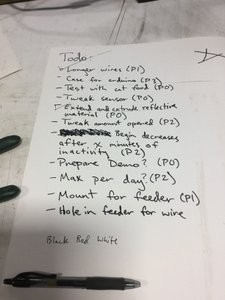 Todo:
- Longer wires (P1)
- Case for arduino (P2)
- Test with cat food (P0)
- Tweak sensor (P0)
- Extend and extrude reflective
material (P0)
- Tweak amount opened (P2)
- Begin decreases
after x minutes of
inactivity (P2)
- Prepare Demo? (P0)
- Max per day? (P2)
- Mount for feeder (P1)
- Hole in feeder for wire
Black Red White